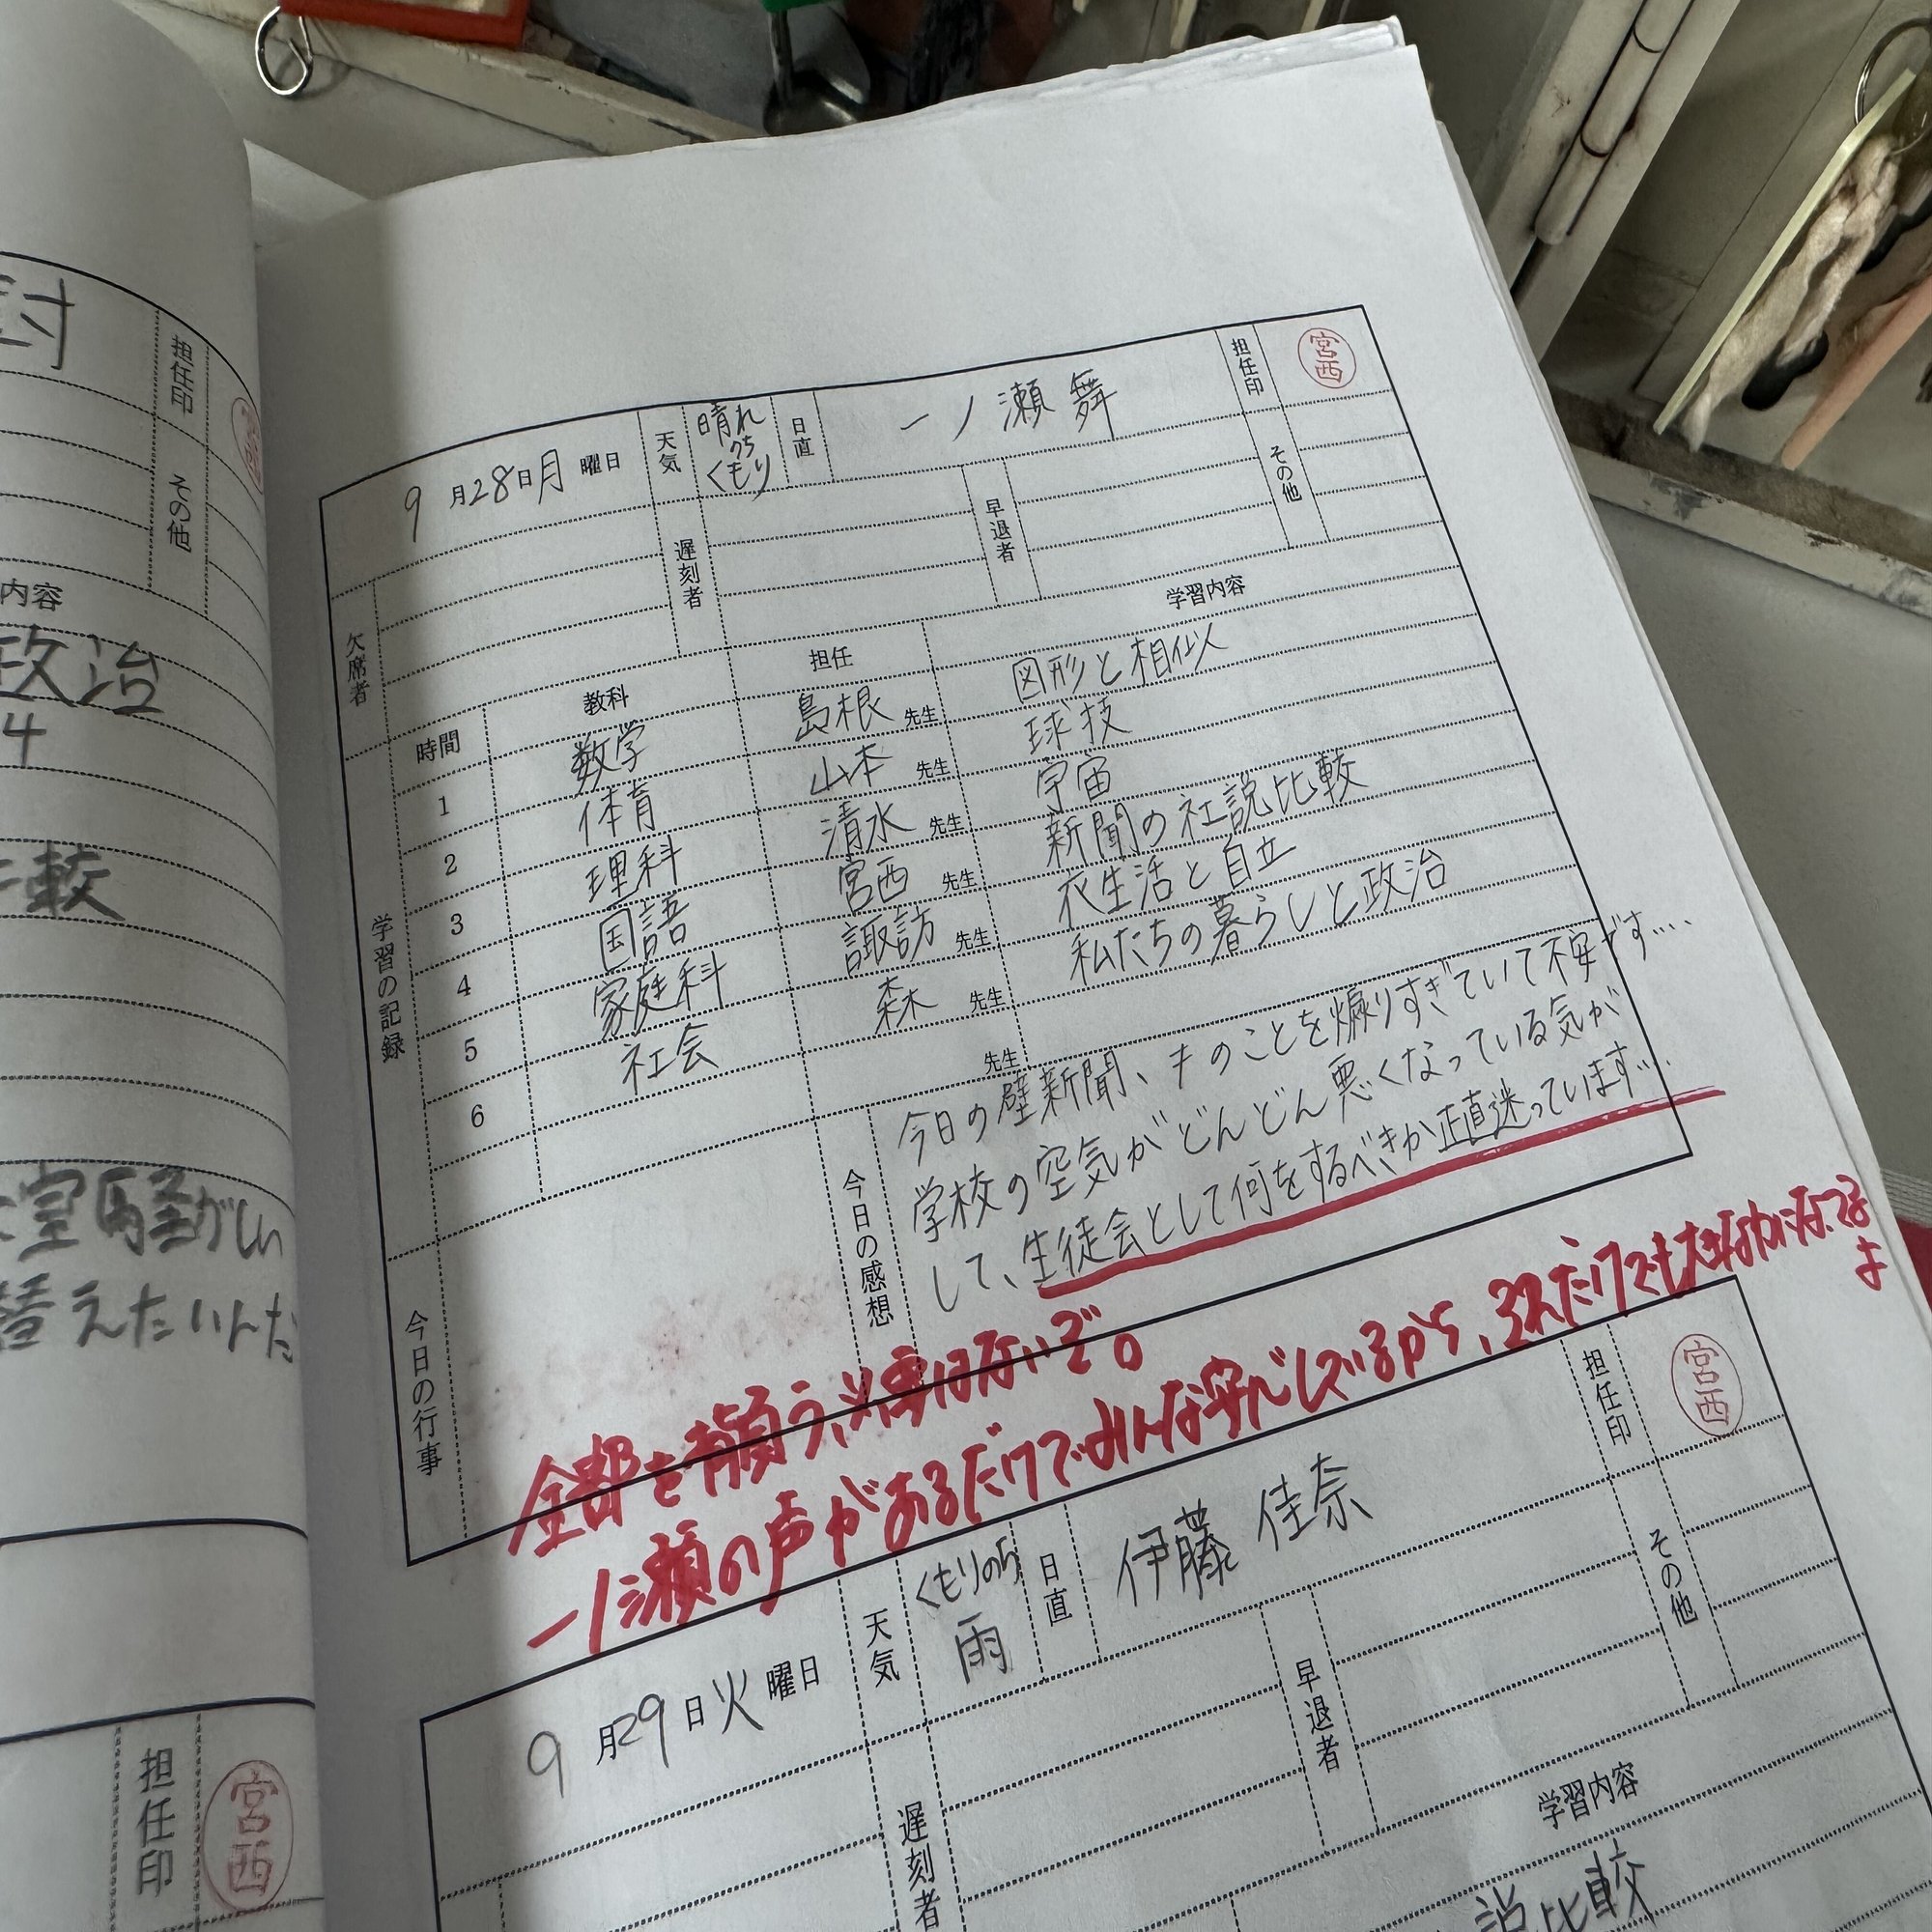 討
担任印
その他
内容
政治
4
比較
空騒がしい
替えたいんだ
担任印
宮西
9月28日月曜日
天気
晴れ
のち
くもり
日直
一ノ瀬 舞
担任印
宮西
欠席者
遅刻者
早退者
その他
時間
教科
担任
学習内容
学習の記録
1 数学 島根先生 図形と相似
2 体育 山本先生 球技
3 理科 清水先生 宇宙
4 国語 宮西先生 新聞の社説比較
5 家庭科 諏訪先生 衣生活と自立
6 社会 森先生 私たちの暮らしと政治
先生
今日の行事
今日の感想
今日の壁新聞、キのことを煽りすぎていて不安です….
学校の空気がどんどん悪くなっている気が
して、生徒会として何をするべきか正直迷っています….
全部を背負う必要はないぞ。
一ノ瀬の声があるだけでみんな安心しているから、それだけでも大きな力になってるよ
9月29日火曜日
天気
くもりのち
雨
日直
伊藤 佳奈
担任印
宮西
遅刻者
早退者
その他
学習内容
説比較